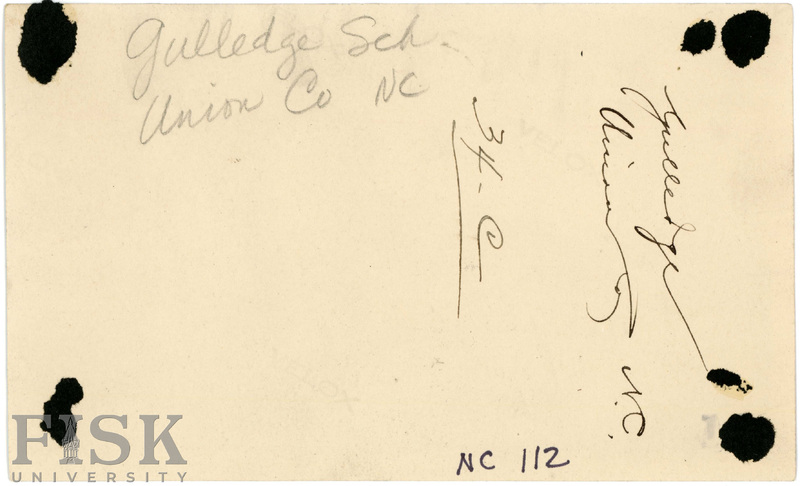 Gulledge Sch.
Union Co NC
Gulledge
Union N.C.
NC 112
FISK
UNIVERSITY